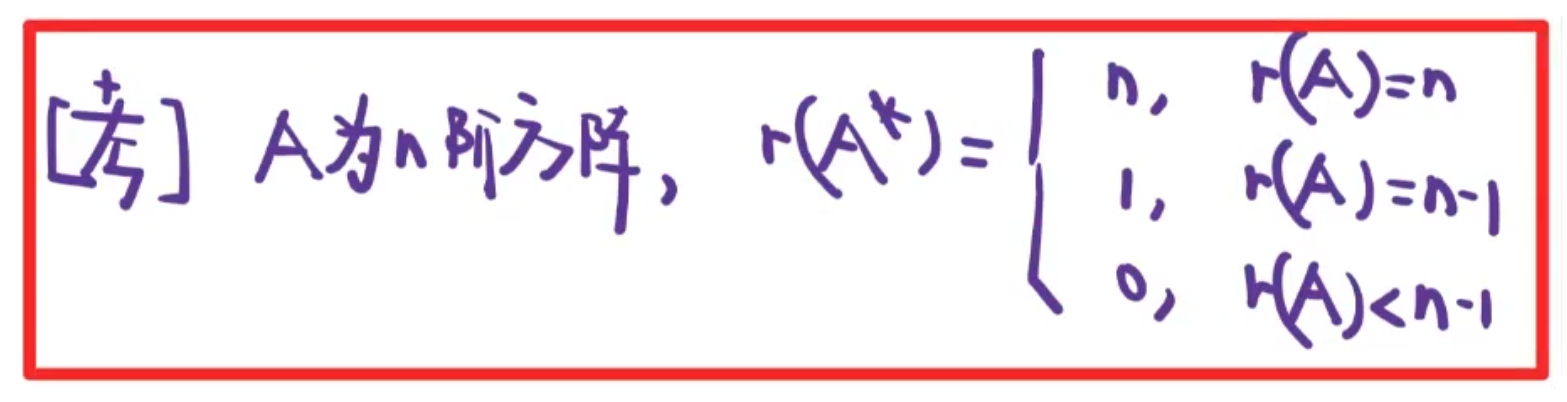 [考] A为n阶方阵, r(A*) = { n, r(A)=n
1, r(A)=n-1
0, r(A)<n-1